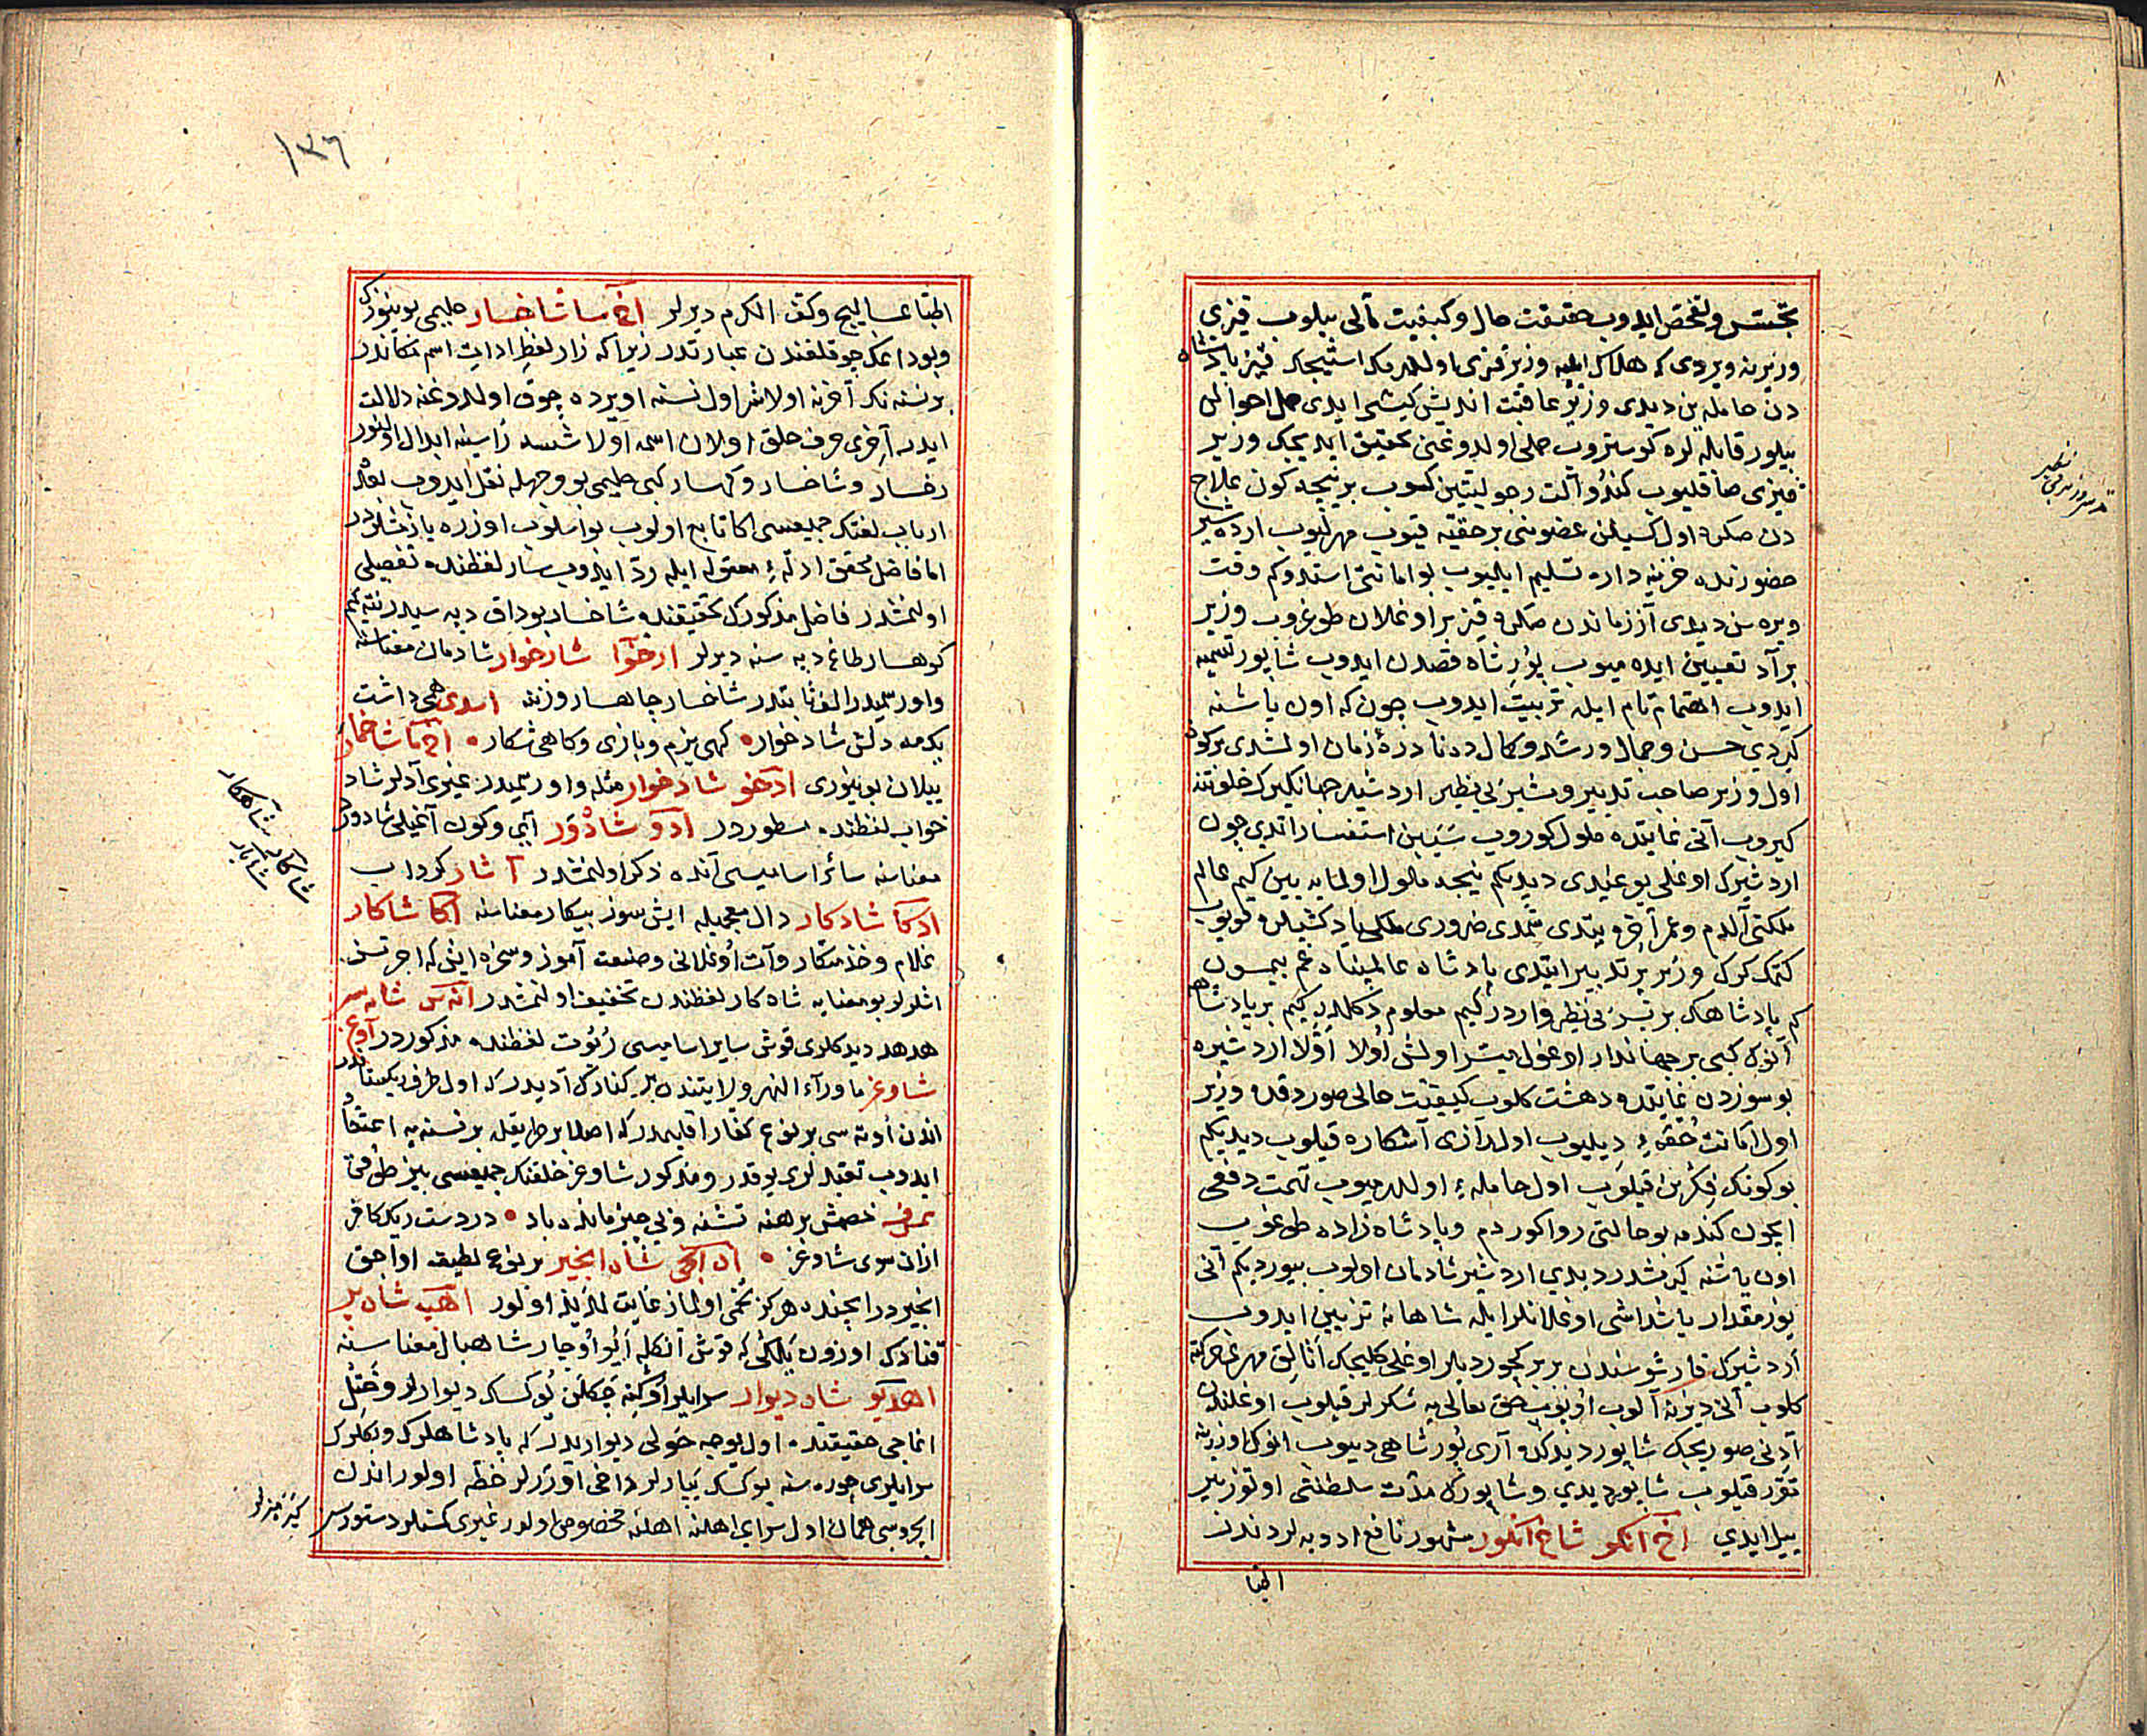 تجسس و تفحص ایدوب حقیقت حال و کیفیت مآلی بیلوب قیزی
وزیرینه ویردی که هلاک ایلیه وزیر قیزی اولدرمک استیجک قیز پادشاه
دن حامله ین دیدی وزیر عاقبت اندیش کیشی ایدی حمل احوالن
بیلور قابله لره کوستروب حملی اولدوغنی تحقیق ایدیجک وزیر
قیزی صاقلیوب کندو آلت رجولیتین کسوب بر نیجه کون علاج
دن صکره اول کسیلن عضونی بر حقیه قیوب مهرلیوب اردشیر
حضورنده خزینه داره تسلیم ایلیوب بو امانتی استدوکم وقت
ویره سن دیدی آز زماندن صکره قیز بر اوغلان طوغروب وزیر
بر آد تعیین ایده میوب پور شاه قصدن ایدوب شاپور تسمیه
ایدوب اهتمام تام ایله تربیت ایدوب چون که اون یاشنه
کیردی حسن و جمال و رشد و کمال ده نادرهٔ زمان اولمشدی بر کون
اول وزیر صاحب تدبیر و مشیر بی نظیر اردشیر جهانکیرک خلوتنه
کیروب آنی غایتده ملول کوروب سببین استفسار اتدی چون
اردشیرک اوغلی یوغیدی دیدیکم نیجه ملول اولمایه یین کیم عالم
ملکتی آلدم و عمر آخره یتدی شمدی ضروری ملکی یاد کشیلره قویوب
کتمک کرک وزیر بر تدبیر ایتدی پادشاه عالمپناه غم ییمسون
کم پادشاهک بر بی نظیر واردر کیم معلوم دکلدر کیم بر پادشاهه
آنوک کبی بر جهاندار اوغول میسر اولمش اولا اولا اردشیره
بو سوزدن غایتده دهشت کلوب کیفیت حالی صوردقده وزیر
اول امانت حقه یی دیلیوب اول رازی آشکاره قیلوب دیدیکم
بو کونک فکرین قیلوب اول حامله یی اولدرمیوب تهمت دفعی
ایچون کندمه بو حالتی روا کوردم و پادشاه زاده طوغوب
اون یاشنه کیرمشدر دیدی اردشیر شادمان اولوب بیوردیکم آنی
یوز مقدار یاشداشی اوغلانلر ایله شاهانه تزیین ایدوب
اردشیرک قارشوسندن بر بر کچوردیلر اوغلی کلیجک اتالق مهری حرکته
کلوب آنی دیزنه آلوب اوپوب حق تعالی یه شکرلر قیلوب اوغلندن
آدنی صوریجک شاپور دیدکده آری پور شاهی دییوب انوک اوزرینه
تقرر قیلوب شاپور دیدی و شاپورک مدت سلطنتی اوتوز بیر
ییل ایدی اخ آنکو شاخ آنکور مشهور نافع ادویه لردندر
الطبا
الطبا عسالیج وکف الکرم دیرلر اخ سا شاخسار حلیمی بوینوزک
و بوداغک چوقلغندن عبارتدر زیرا که زار لفظی ادات اسم مکاندر
بر نسنه نک آخرنه اولاشر اول نسنه او یرده چوق اولدوغنه دلالت
ایدر آخری حرف حلق اولان اسمه اولاشسه زاسینه ابدال اولنور
رخسار و شاخسار و کهسار کبی حلیمی بو وجهله نقل ایدوب بعده
ارباب لغتک جمیعسی اکا تابع اولوب بو اسلوب اوزره یازمشلردر
اما فاضل محقق ادلهٔ معقوله ایله رد ایدوب سار لفظنده تفصیلی
اولنمشدر فاضل مذکورک تحقیقنده شاخسار بوداق دپه سیدر نته کیم
کوهسار طاغ دپه سنه دیرلر ارخوا شادخوار شادمان معناسنه
واو رسمیدر الف ثابتدر شاخسار چاهسار وزننده اسدی همی داشت
یکمه دلش شاد خواره کهی بزم و بازی و کاهی شکاره اخ ما شاخمار
ییلان بوینوزی ادخو شادخوار مثله واو رسمیدر غیری آدلر شاد
خواب لفظنده مسطوردر ادو شادور آیی و کون آغیلی شادورد
معناسنه سائر اسامیسی آنده ذکر اولنمشدر آ شار کرداب
ادکا شادکار دال معجمیله ایش سوز بیکار معناسنه اکا شاکار
غلام و خدمتکار و آت اوغلانی و صنعت آموز و سخره ایش که اجرتسز
اشلرلر بو معنایه شاه کار لفظندن تخفیف اولنمشدر انه س شانه سر
هدهد دیدکلری قوش سایر اسامیسی لفظنده مذکوردر اوغ
شاوغر ماوراء النهر ولایتنده بر کنارک آدیدر که اول طرف ریکستاندر
اندن اوته سی بر نوع کفار اقلیمدر که اصلا بر طریقله بر نسنه یه اعتقاد
ایدوب تعبدلری یوقدر و مذکور شاوغر خلقنک جمیعسی بیز طوقور
خصمش برهنه تشنه و بی چیز مانده باد ه در دست ریک کافر
ازان سوی شاوغر ه اه انجی شاه انجیر بر نوع لطیف اواجق
انجیردر ایچنده هرکز تخمی اولماز غایت لذیذ اولور اهپ شاه پر
قنادک اوزون یلکی که قوش آنکله اوچار شاهبال معناسنه
اهدیو شاه دیوار سرایلر اوکنه چکلن یوکسک دیوارلر
اما حق حقیقتنده اول یوجه حولی دیواریدر که پادشاهلرک و بکلرک
سرایلری چوره سنه یوکسک یپارلر داخی اوزرلر خطه اولور اندن
ایچروسی همان اول سرای اهلنه مخصوص اولور غیری کمسنلر دستورسز
شاهکار
شاکار
۱۳۶